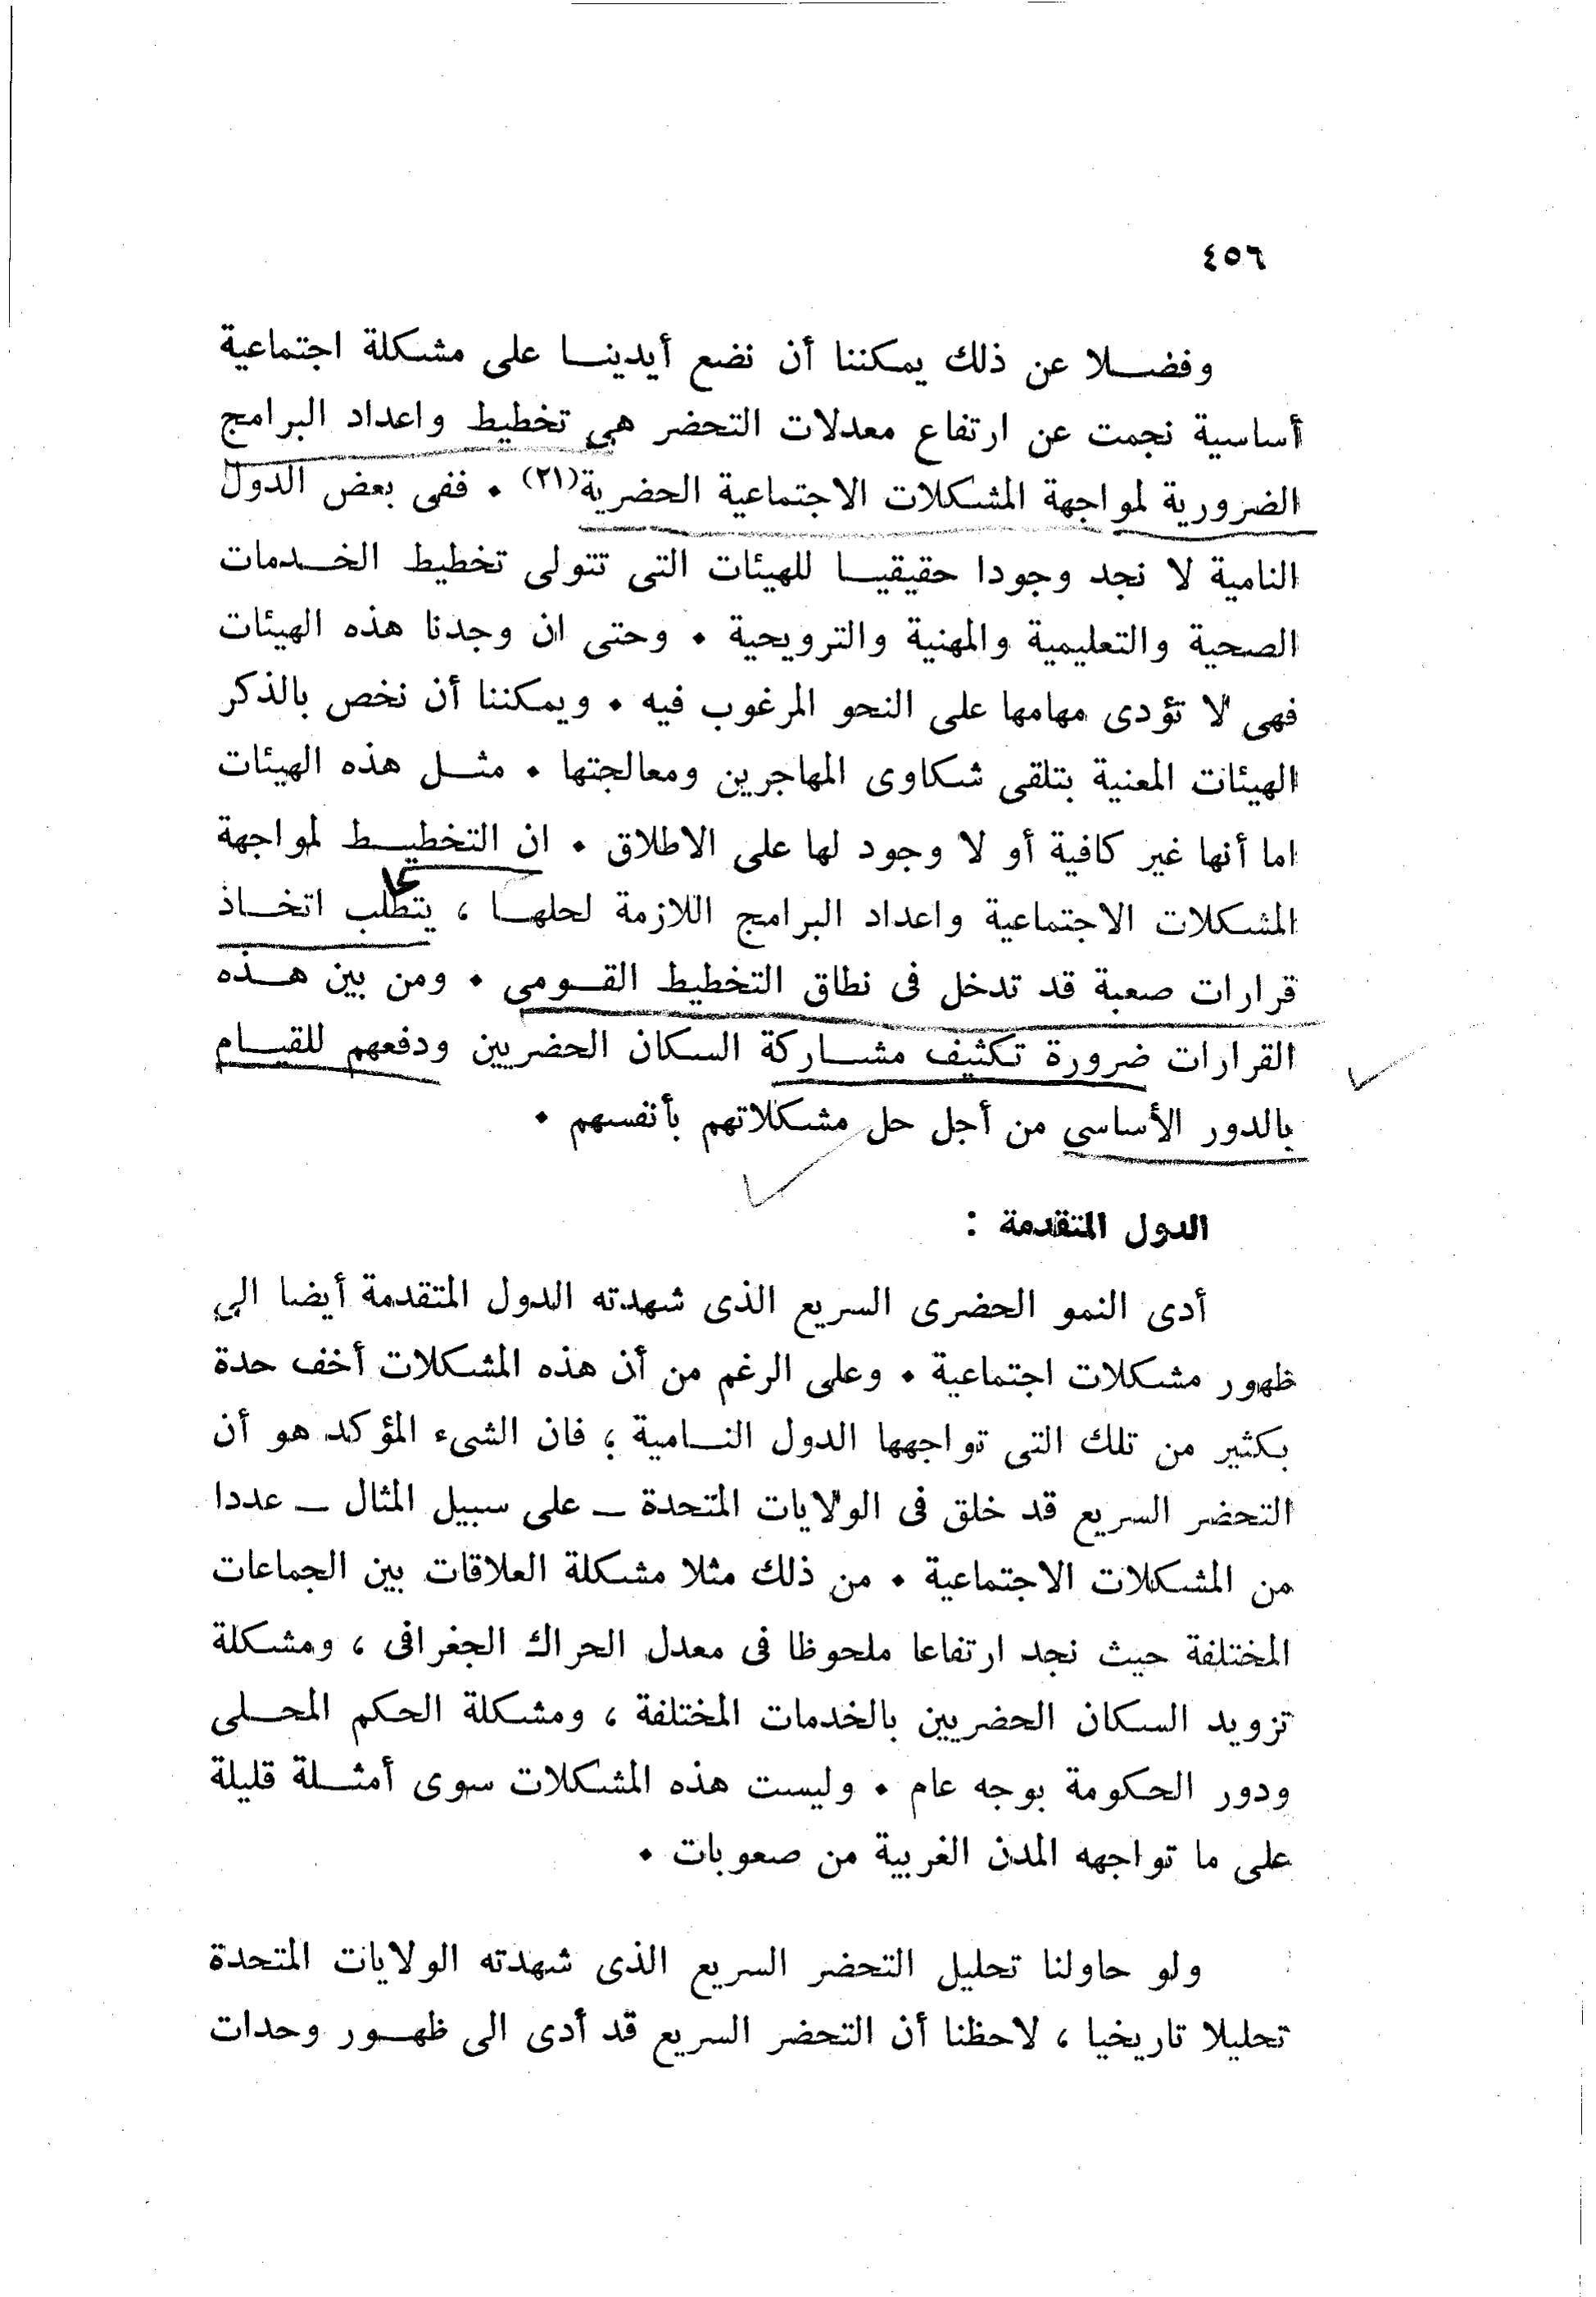 ٤٥٦
وفضلا عن ذلك يمكننا أن نضع أيدينا على مشكلة اجتماعية
أساسية نجمت عن ارتفاع معدلات التحضر هي تخطيط واعداد البرامج
الضرورية لمواجهة المشكلات الاجتماعية الحضرية(٢١) • ففى بعض الدول
النامية لا نجد وجودا حقيقيا للهيئات التى تتولى تخطيط الخدمات
الصحية والتعليمية والمهنية والترويحية • وحتى ان وجدنا هذه الهيئات
فهى لا تؤدى مهامها على النحو المرغوب فيه • ويمكننا أن نخص بالذكر
الهيئات المعنية بتلقى شكاوى المهاجرين ومعالجتها • مثل هذه الهيئات
اما أنها غير كافية أو لا وجود لها على الاطلاق • ان التخطيط لمواجهة
المشكلات الاجتماعية واعداد البرامج اللازمة لحلها ، يتطلب اتخاذ
قرارات صعبة قد تدخل فى نطاق التخطيط القومى • ومن بين هذه
القرارات ضرورة تكثيف مشاركة السكان الحضريين ودفعهم للقيام
بالدور الأساسى من أجل حل مشكلاتهم بأنفسهم •
الدول المتقدمة :
أدى النمو الحضرى السريع الذى شهدته الدول المتقدمة أيضا الى
ظهور مشكلات اجتماعية • وعلى الرغم من أن هذه المشكلات أخف حدة
بكثير من تلك التى تواجهها الدول النامية ؛ فان الشىء المؤكد هو أن
التحضر السريع قد خلق فى الولايات المتحدة – على سبيل المثال – عددا
من المشكلات الاجتماعية • من ذلك مثلا مشكلة العلاقات بين الجماعات
المختلفة حيث نجد ارتفاعا ملحوظا فى معدل الحراك الجغرافى ، ومشكلة
تزويد السكان الحضريين بالخدمات المختلفة ، ومشكلة الحكم المحلى
ودور الحكومة بوجه عام • وليست هذه المشكلات سوى أمثلة قليلة
على ما تواجهه المدن الغربية من صعوبات •
ولو حاولنا تحليل التحضر السريع الذى شهدته الولايات المتحدة
تحليلا تاريخيا ، لاحظنا أن التحضر السريع قد أدى الى ظهور وحدات